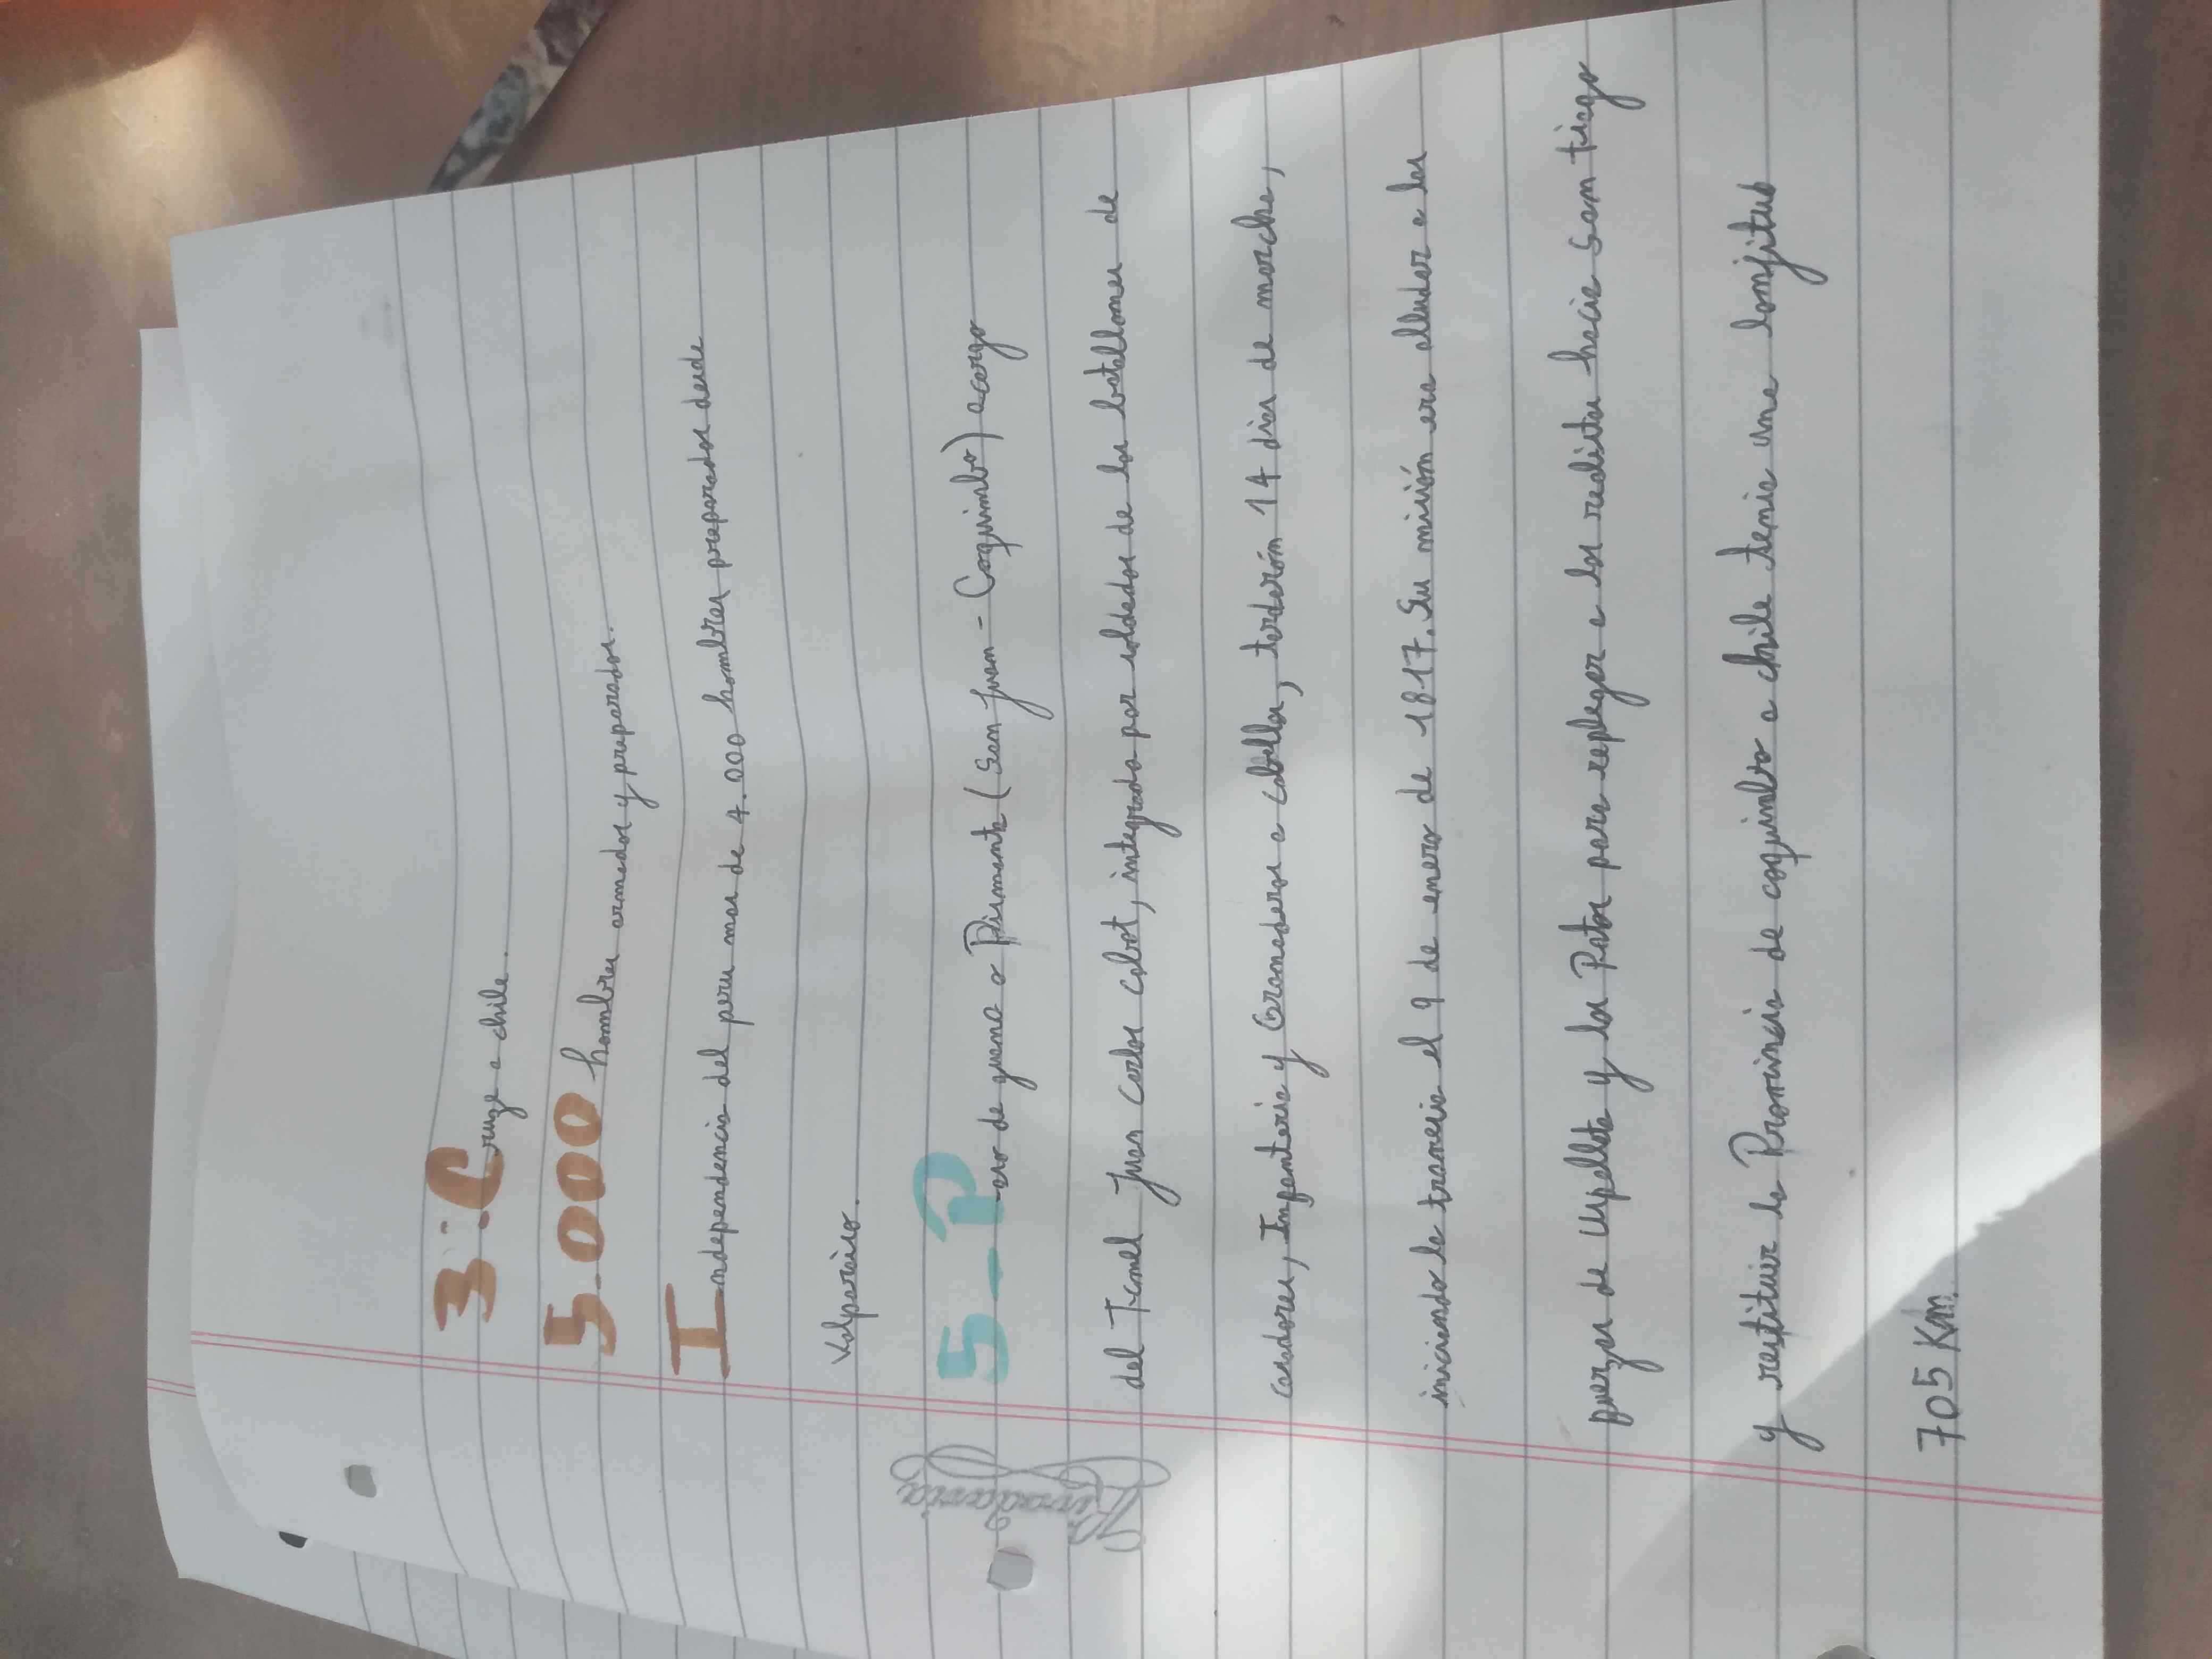 3-Cruze a chile.
5.000 hombres armados y preparados.
Independencia del peru mas de 4.000 hombres preparados desde
Valparaiso.
5-Paso de guana o Pismanta (San Juan - Coquimbo) acargo
del Tcanel Juan Carlos cabot, integrada por soldados de los batallones de
casadores, Infanteria y Granaderos a caballos, tarderón 14 dias de marcha,
iniciando la travesia el 9 de enero de 1817. Su misión era alludar a las
fuerzas de Uspallata y los Patos para replegar a los realistas hacia san tiago
y restituir la Provincia de coquimbo a chile tenia una lonjitub
705 Km.